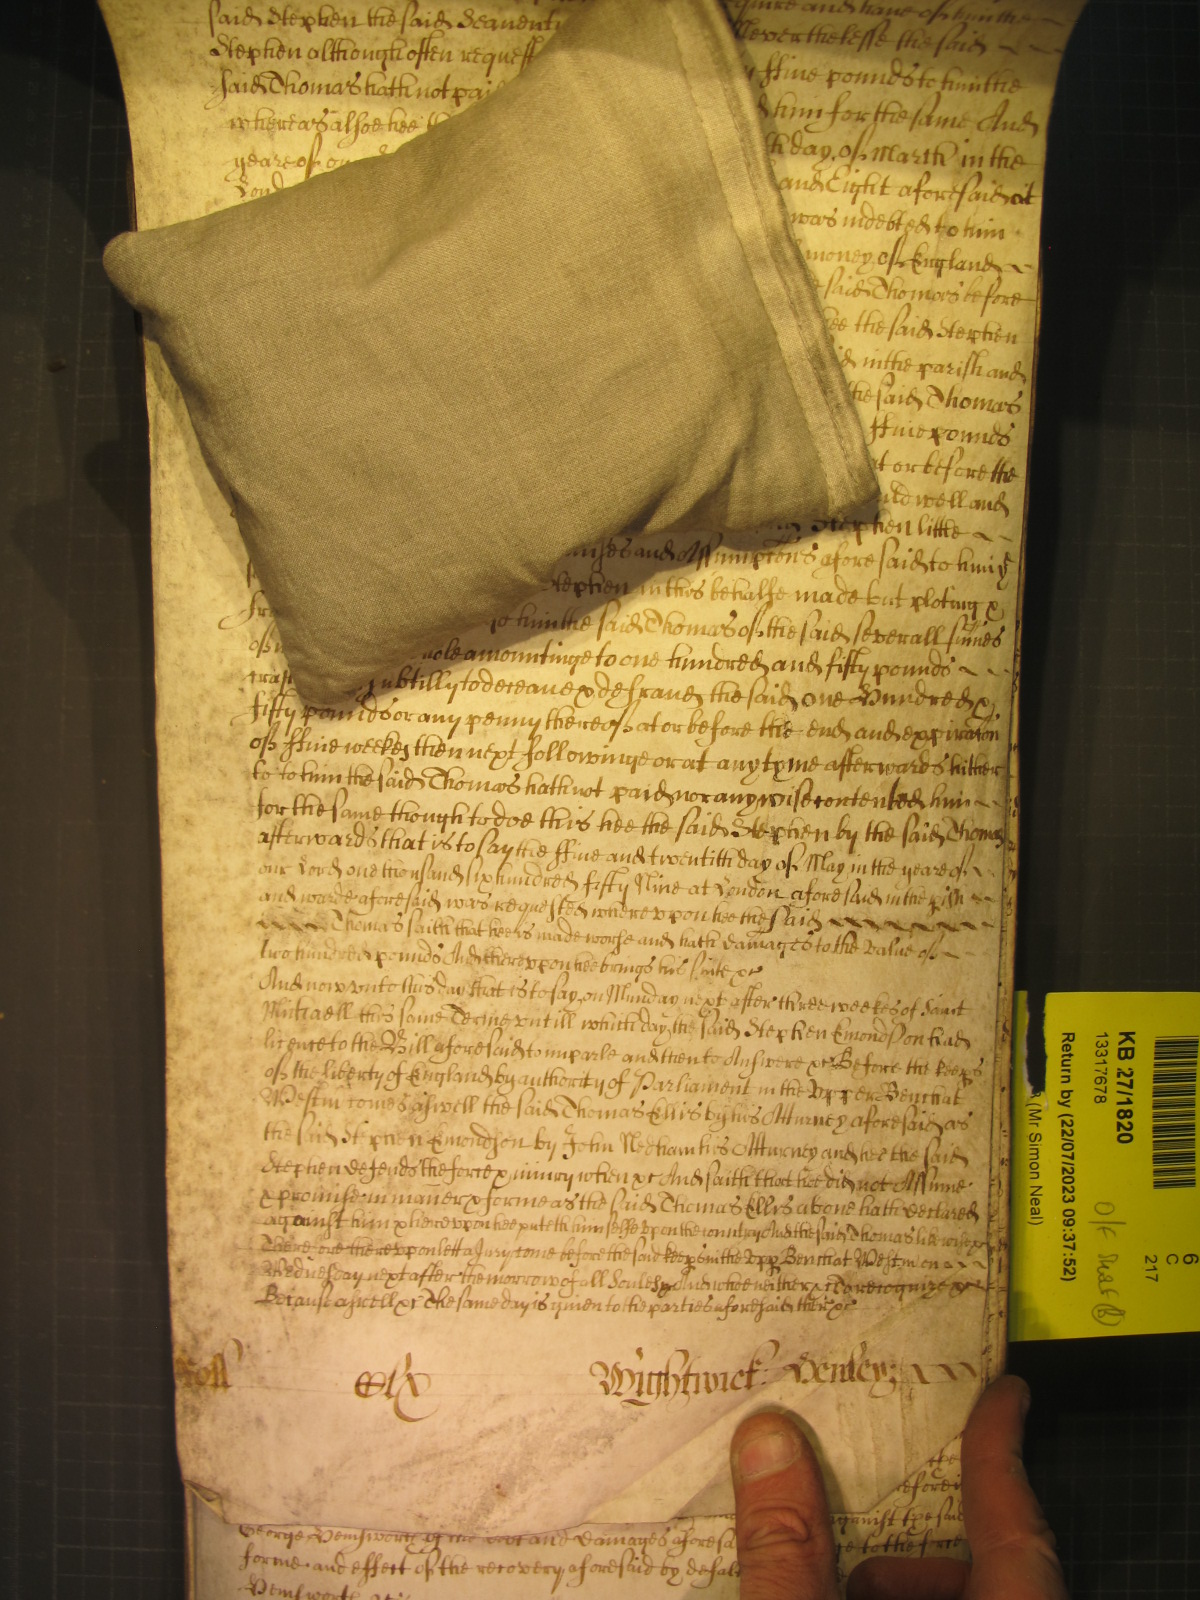 said Stephen the said Seaventi
quire and have of him the
Stephen although often request
Neverthelesse the said
said Thomas hath not paid
ffive pounds to him the
whereas alsoe hee th
him for the same And
yeare of our
day of March in the
Lond
and Eight aforesaid at
was indebted to him
money of England
said Thomas before
hee the said Stephen
in the parish and
the said Thomas
ffive pounds
at or before the
well and
Stephen little
and Assumptons aforesaid to him
Stephen in this behalfe made but ploting &
to him the said Thomas of the said severall sumes
of whole amountinge to one hundred and fifty pounds
subtilly to deceave & defraud the said one Hundred &
fifty pounds or any penny thereof at or before the end and expiracon
of ffive weekes then next followinge or at any tyme afterwards hither
to to him the said Thomas hath not paid nor any wise contented him
for the same though to doe this hee the said Stephen by the said Thomas
afterwards that is to say the ffive and twentith day of May in the yeare of
our Lord one thousand six hundred fifty Nine at London aforesaid in the pish
and warde aforesaid was requested whereupon hee the said
Thomas saith that hee is made worse and hath damages to the value of
Two hundred pounds And thereupon hee brings his suite &c
And now unto this day that is to say on Munday next after three weekes of Saint
Michaell this same Terme untill which day the said Stephen Emondson had
licence to the Bill aforesaid to imparle and then to Answere &c Before the keeps
of the liberty of England by authority of Parliament in the Upper Bench at
Westm comes aswell the said Thomas Ellis by his Atturney aforesaid as
the said Stephen Emondson by John Needham his Atturney and hee the said
Stephen defends the force & iniury when &c And saith that hee did not Assume
& promise in maner & forme as the said Thomas Ellis above hath declared
against him & hereupon hee puteth himselfe upon the country And the said Thomas likewise &c
Therefore thereupon lett a Jury come before the said keeps in the Upp Bench at Westm on
Wednesday next after the morrow of all Soules And whoe neither &c To recognize &c
Because aswell &c The same day is given to the parties aforesaid there &c
Roll
Wightwick: Henley:
George Hemsworth and damages aforesa
against the said
forme and effect of the recovery aforesaid by defalt
to the force
Hemsworth
KB 27/1820
13317678
Return by (22/07/2023 09:37:52)
(Mr Simon Neal)
6
C
217